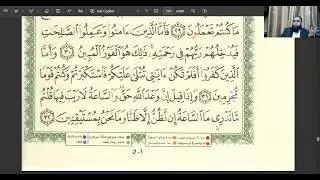 Ask Copilot
مَا كُنتُمْ تَعْمَلُونَ ﴿٢٩﴾ فَأَمَّا الَّذِينَ ءَامَنُوا وَعَمِلُوا الصَّٰلِحَٰتِ
فَيُدْخِلُهُمْ رَبُّهُمْ فِي رَحْمَتِهِۦ ذَٰلِكَ هُوَ الْفَوْزُ الْمُبِينُ ﴿٣٠﴾ وَأَمَّا
الَّذِينَ كَفَرُوا أَفَلَمْ تَكُنْ ءَايَٰتِي تُتْلَىٰ عَلَيْكُمْ فَاسْتَكْبَرْتُمْ وَكُنتُمْ قَوْمًا
مُّجْرِمِينَ ﴿٣١﴾ وَإِذَا قِيلَ إِنَّ وَعْدَ اللَّهِ حَقٌّ وَالسَّاعَةُ لَا رَيْبَ فِيهَا قُلْتُم
مَّا نَدْرِي مَا السَّاعَةُ إِن نَّظُنُّ إِلَّا ظَنًّا وَمَا نَحْنُ بِمُسْتَيْقِنِينَ ﴿٣٢﴾
٥٠١